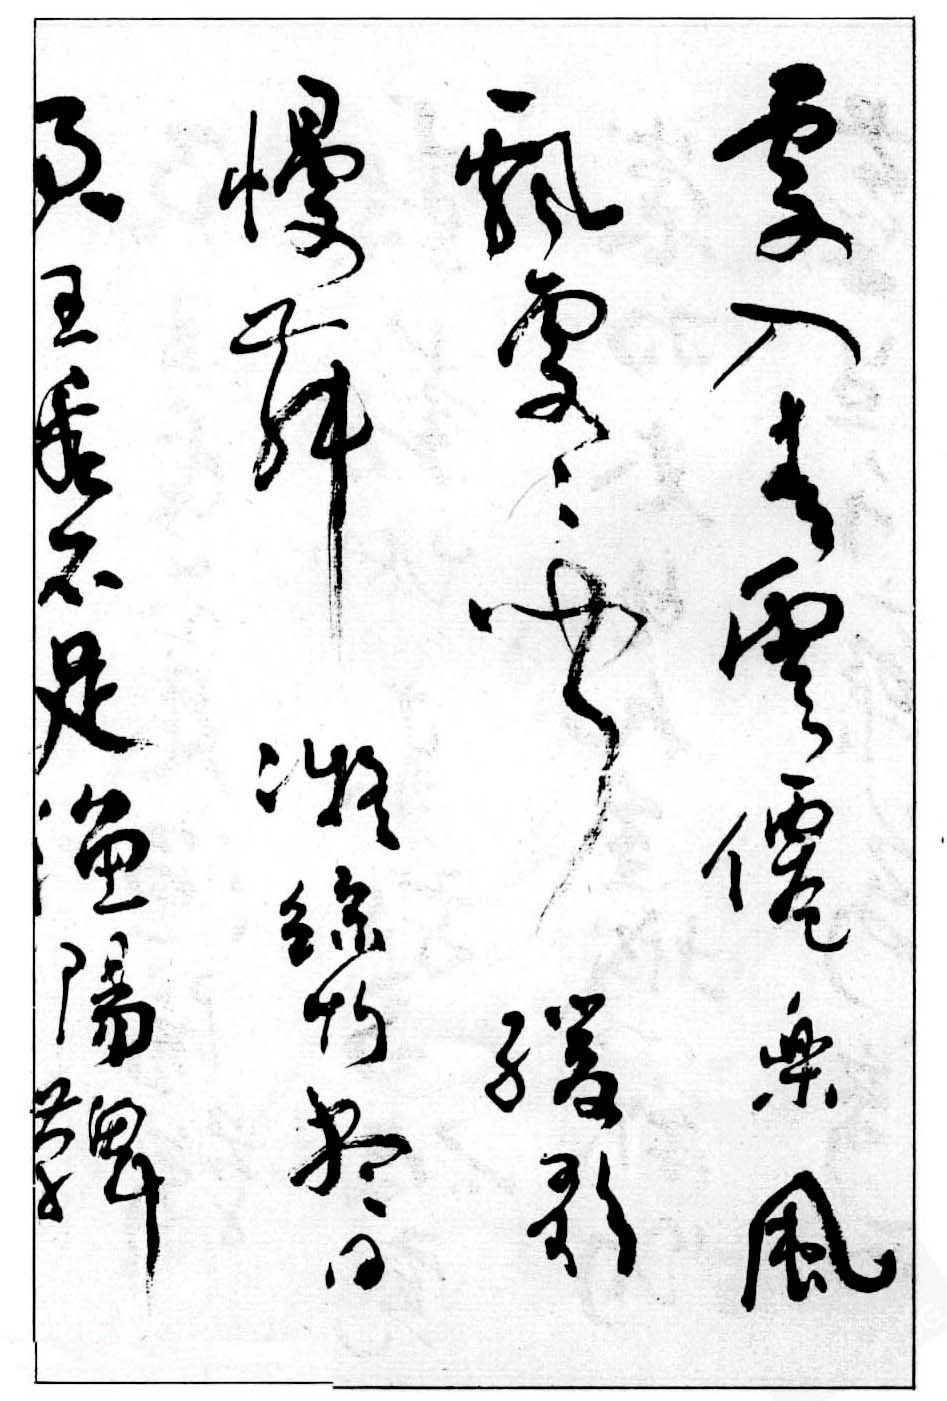 處入青雲仙樂風
飄處處聞緩歌
慢舞凝絲竹盡日
君王看不足漁陽鞞